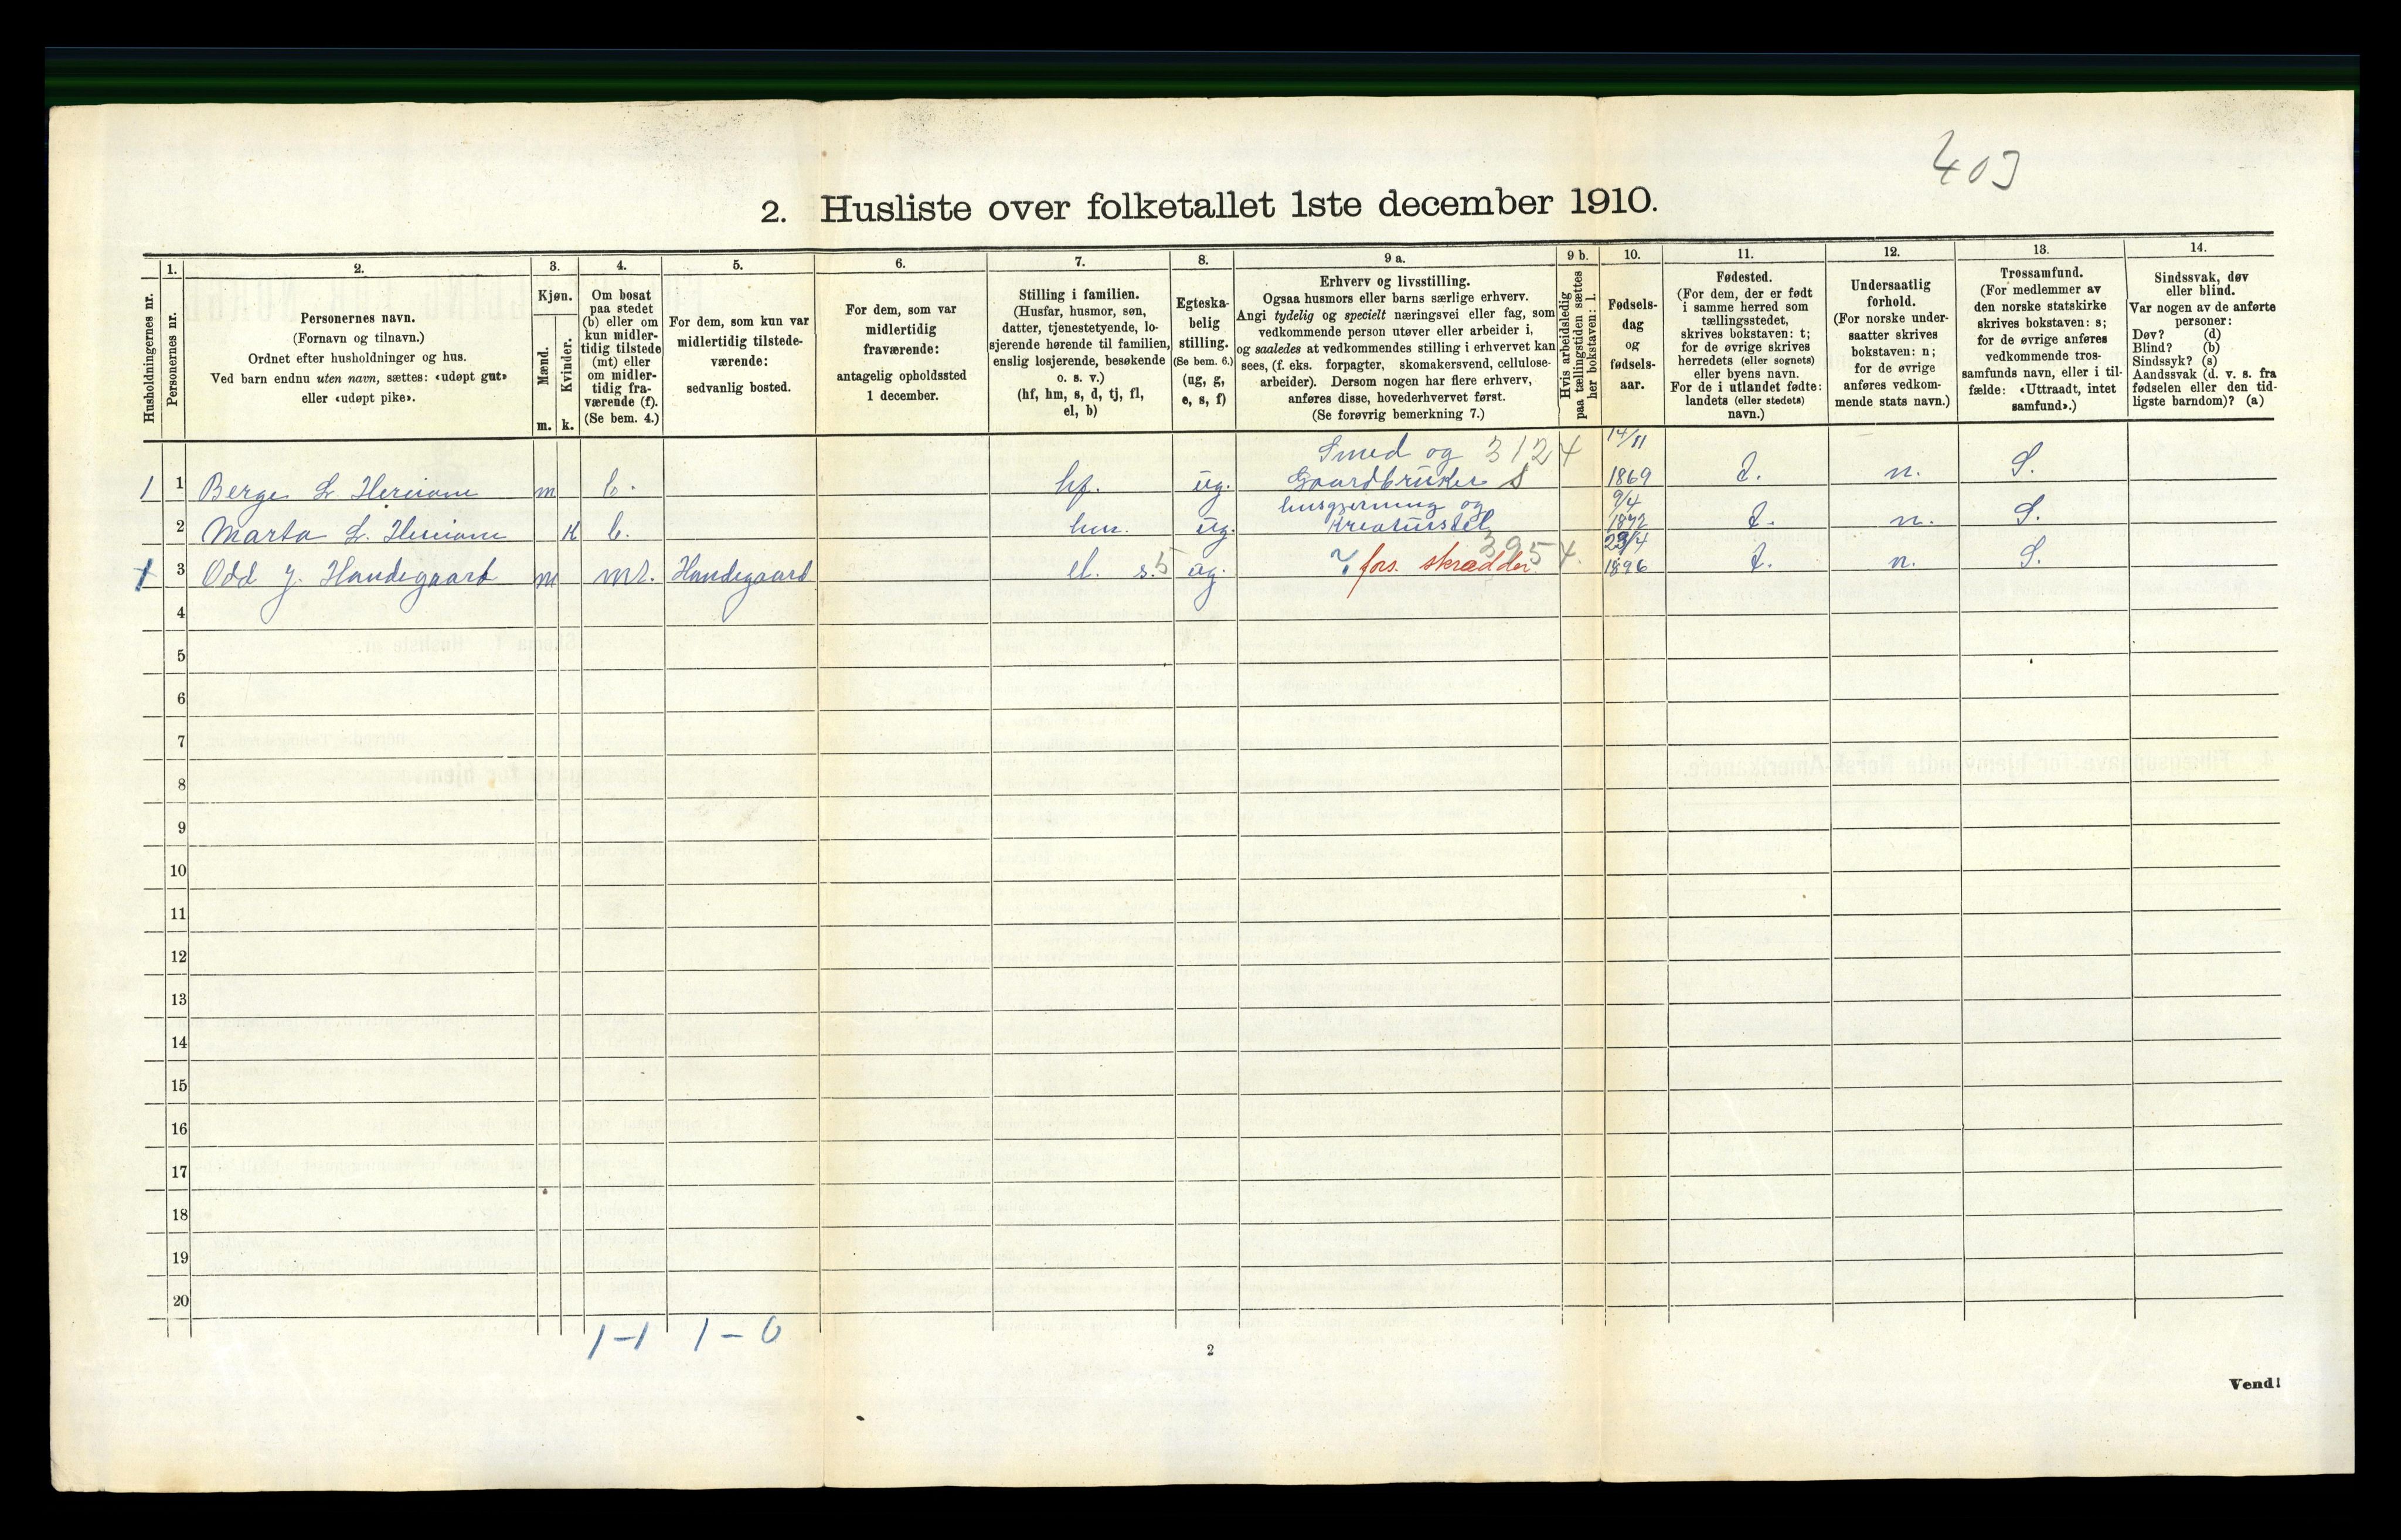 403
2. Husliste over folketallet 1ste december 1910.
Husholdningernes nr.
1.
Personernes nr.
2.
Personernes navn.
(Fornavn og tilnavn.)
Ordnet efter husholdninger og hus.
Ved barn endnu uten navn, sættes: «udøpt gut»
eller «udøpt pike».
3.
Kjøn.
Mænd.
Kvinder.
m. k.
4.
Om bosat
paa stedet
(b) eller om
kun midler-
tidig tilstede
(mt) eller
om midler-
tidig fra-
værende (f).
(Se bem. 4.)
5.
For dem, som kun var
midlertidig tilstede-
værende:
sedvanlig bosted.
6.
For dem, som var
midlertidig
fraværende:
antagelig opholdssted
1 december.
7.
Stilling i familien.
(Husfar, husmor, søn,
datter, tjenestetyende, lo-
sjerende hørende til familien,
enslig losjerende, besøkende
o. s. v.)
(hf, hm, s, d, tj, fl,
el, b)
8.
Egteska-
belig
stilling.
(Se bem. 6.)
(ug, g,
e, s, f)
9 a.
Erhverv og livsstilling.
Ogsaa husmors eller barns særlige erhverv.
Angi tydelig og specielt næringsvei eller fag, som
vedkommende person utøver eller arbeider i,
og saaledes at vedkommendes stilling i erhvervet kan
sees, (f. eks. forpagter, skomakersvend, cellulose-
arbeider). Dersom nogen har flere erhverv,
anføres disse, hovederhvervet først.
(Se forøvrig bemerkning 7.)
9 b.
Hvis arbeidsledig
paa tællingstiden sættes
her bokstaven: l.
10.
Fødsels-
dag
og
fødsels-
aar.
11.
Fødested.
(For dem, der er født
i samme herred som
tællingsstedet,
skrives bokstaven: t;
for de øvrige skrives
herredets (eller sognets)
eller byens navn.
For de i utlandet fødte:
landets (eller stedets)
navn.)
12.
Undersaatlig
forhold.
(For norske under-
saatter skrives
bokstaven: n;
for de øvrige
anføres vedkom-
mende stats navn.)
13.
Trossamfund.
(For medlemmer av
den norske statskirke
skrives bokstaven: s;
for de øvrige anføres
vedkommende tros-
samfunds navn, eller i til-
fælde: «Uttraadt, intet
samfund».)
14.
Sindssvak, døv
eller blind.
Var nogen av de anførte
personer:
Døv? (d)
Blind? (b)
Sindssyk? (s)
Aandssvak (d. v. s. fra
fødselen eller den tid-
ligste barndom)? (a)
Smed og 3124 14/11
1 1 Berge L. m b. hf. ug. Gaardbruker s 1869 t. n. S.
husgjerning og 9/4
2 Marta L. k b. hm. ug. Kreaturstel 1872 t. n. S.
3954 23/4
3 Odd J. Handegaard m mt. Handegaard el. s. 5 ug. fors. skrædder 1896 t. n. S.
4
5
6
7
8
9
10
11
12
13
14
15
16
17
18
19
20
1-1 1-0
2
Vend!